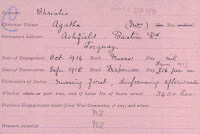 Christie
Christian Names Agatha (Mrs)
Permanent Address: Ashfield Barton Rd
Torquay.
Date of Engagement Oct. 1914 Rank Nurse Pay Nil
Date of Termination Sept. 1918 Rank Dispenser Pay £16
Particulars of Duties Nursing first, dispensing afterwards
Whether whole or part time, and if latter No. of hours served 3400 hrs
Previous Engagements under Joint War Committee, if any, and where
Nil
Nil